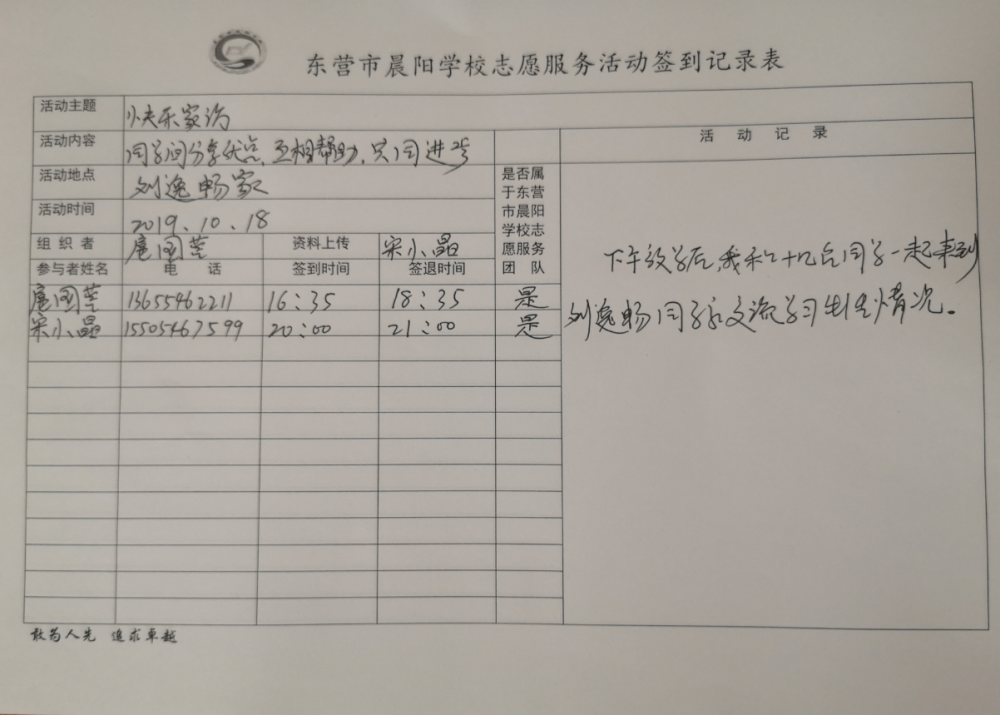 东营市晨阳学校志愿服务活动签到记录表
活动主题 快乐家访
活动内容 同学间分享优点,互相帮助,共同进步
活动地点 刘逸畅家
活动时间 2019.10.18
组织者 扈国芸 资料上传 宋小晶
是否属于东营市晨阳学校志愿服务团队
活动记录
参与者姓名 电话 签到时间 签退时间
扈国芸 13655462211 16:35 18:35 是
宋小晶 15505467599 20:00 21:00 是
下午放学后,我和几十几名同学一起来到
刘逸畅同学家交流学习生活情况。
敢为人先 追求卓越